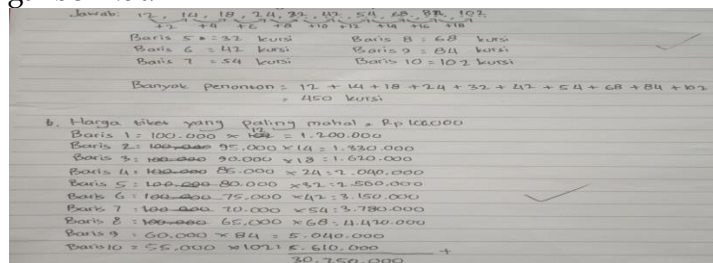 Jawab: 12, 14, 18, 24, 32, 42, 54, 68, 84, 102
+2 +4 +6 +8 +10 +12 +14 +16 +18
Baris 5 = 32 kursi Baris 8 : 68 kursi
Baris 6 = 42 kursi Baris 9 = 84 kursi
Baris 7 = 54 kursi Baris 10 = 102 kursi
Banyak penonton = 12 + 14 + 18 + 24 + 32 + 42 + 54 + 68 + 84 + 102
= 450 kursi
b. Harga tiket yang paling mahal = Rp 100.000
Baris 1 = 100.000 × 12 = 1.200.000
Baris 2 = 95.000 × 14 = 1.330.000
Baris 3 = 90.000 × 18 = 1.620.000
Baris 4 = 85.000 × 24 = 2.040.000
Baris 5 = 80.000 × 32 = 2.560.000
Baris 6 = 75.000 × 42 = 3.150.000
Baris 7 = 70.000 × 54 = 3.780.000
Baris 8 = 65.000 × 68 = 4.420.000
Baris 9 = 60.000 × 84 = 5.040.000
Baris 10 = 55.000 × 102 = 5.610.000 +
30.750.000